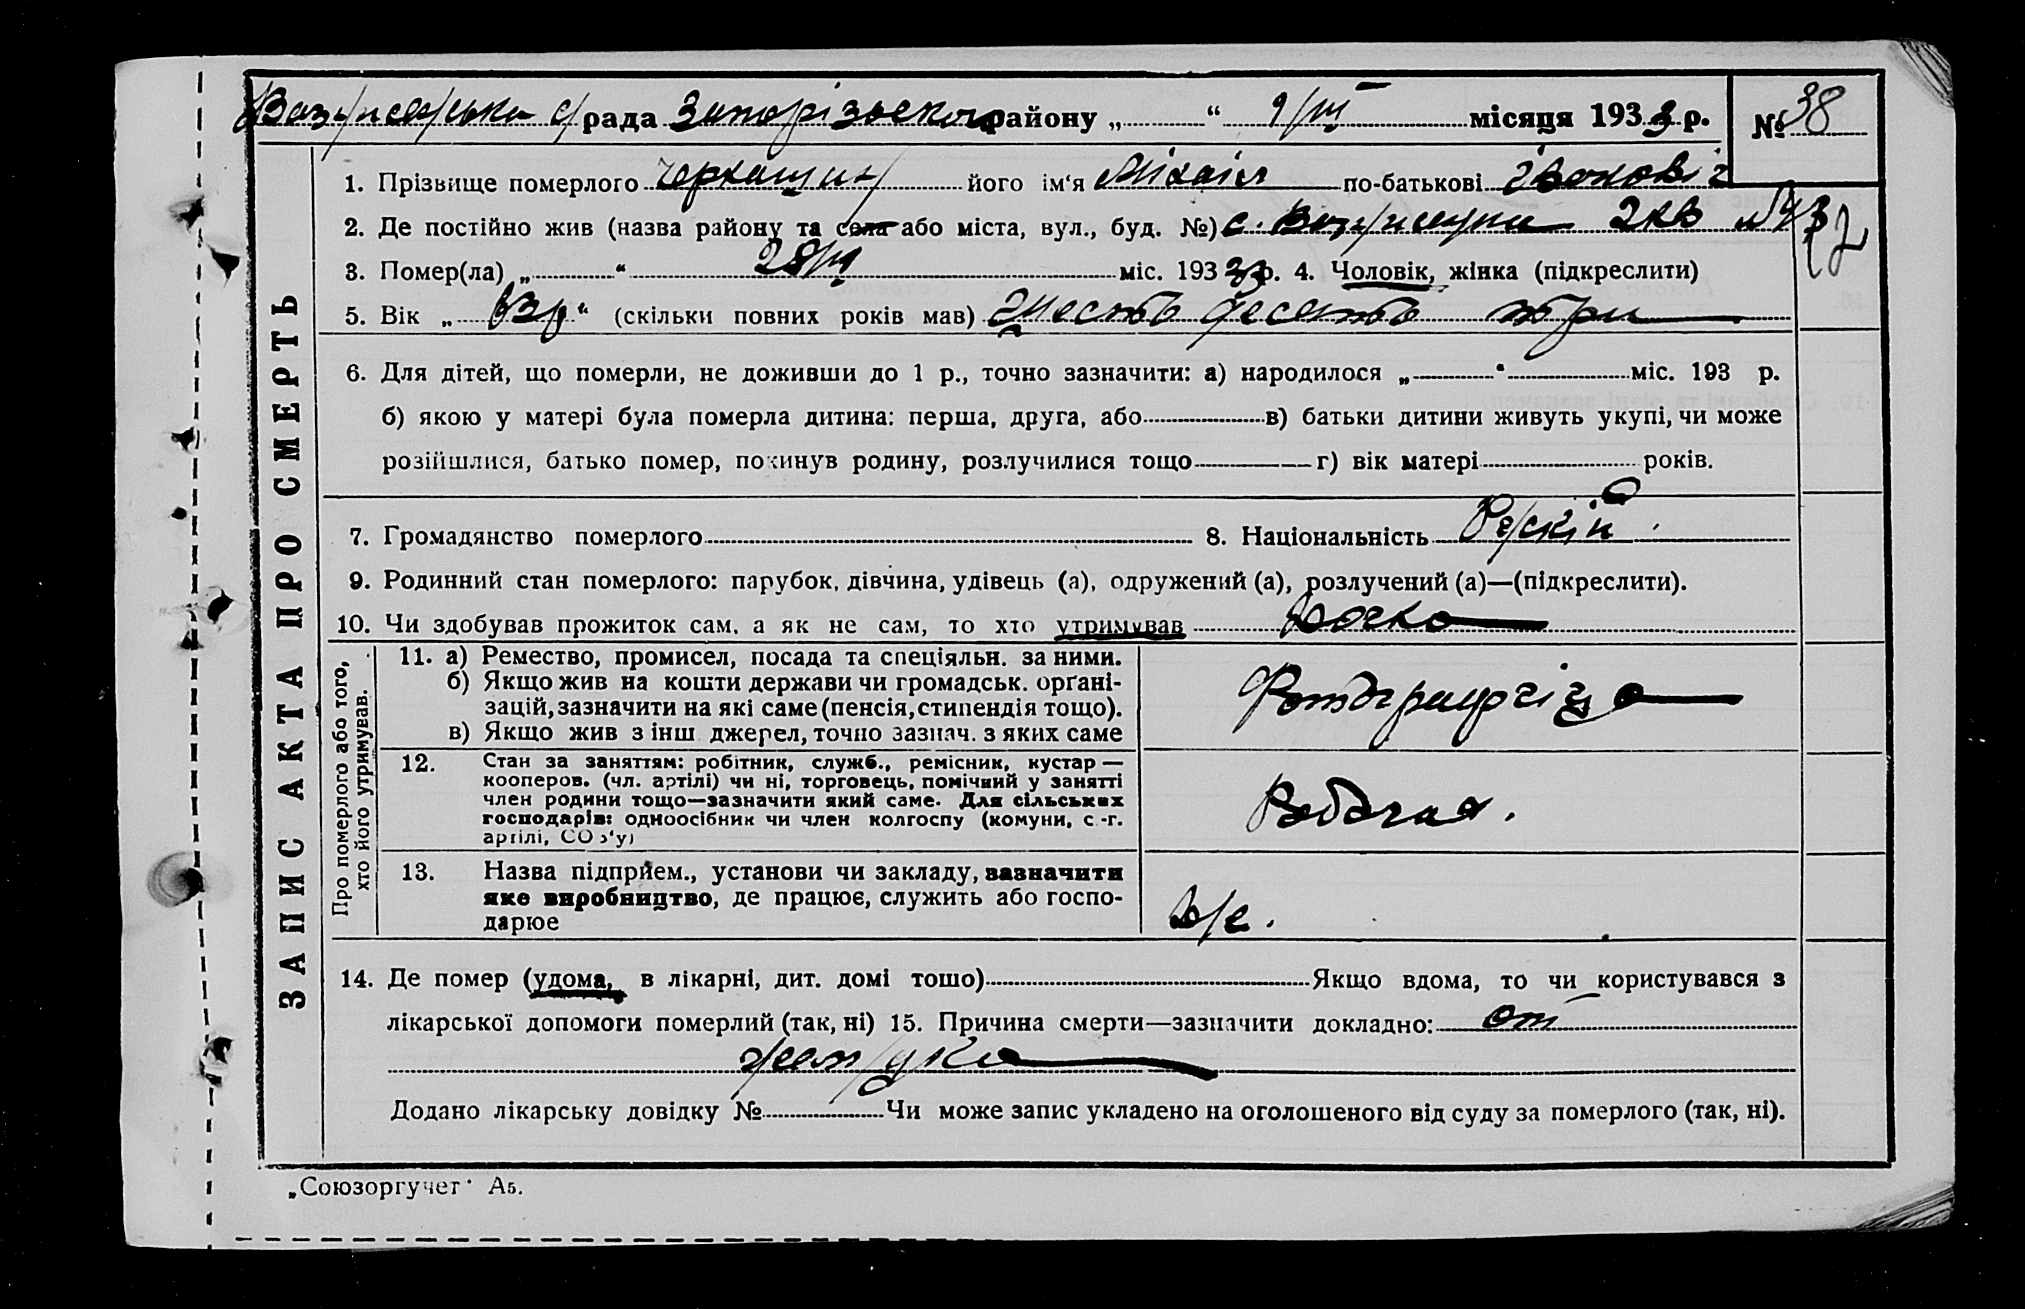 Вознесенська с/рада Запорізького району „ “ 9/III місяця 1933 р. № 38
1. Прізвище померлого Черкащин його ім‘я Міхаіл по-батькові Івонові
2. Де постійно жив (назва району та села або міста, вул., буд. №) с. Вознесенка 2 кв
3. Помер(ла) „ “ міс. 1933 р. 4. Чоловік, жінка (підкреслити)
5. Вік „ 63 р “ (скільки повних років мав) шестьдесять три
6. Для дітей, що померли, не доживши до 1 р., точно зазначити: а) народилося „ “ міс. 193 р.
б) якою у матері була померла дитина: перша, друга, або в) батьки дитини живуть укупі, чи може
розійшлися, батько помер, покинув родину, розлучилися тощо г) вік матері років.
7. Громадянство померлого 8. Національність Рускій
9. Родинний стан померлого: парубок, дівчина, удівець (а), одружений (а), розлучений (а)—(підкреслити).
10. Чи здобував прожиток сам, а як не сам, то хто утримував Дочка
Про померлого або того, хто його утримував.
11. а) Ремество, промисел, посада та спеціяльн. за ними.
б) Якщо жив на кошти держави чи громадськ. орґані-
зацій, зазначити на які саме (пенсія, стипендія тощо).
в) Якщо жив з інш джерел, точно зазнач. з яких саме
12. Стан за заняттям: робітник, служб., ремісник, кустар —
кооперов. (чл. артілі) чи ні, торговець, помічний у занятті
член родини тощо—зазначити який саме. Для сільських
господарів: одноосібник чи член колгоспу (комуни, с.-г.
артілі, СОЗ‘у)
Робочая.
13. Назва підприєм., установи чи закладу, зазначити
яке виробництво, де працює, служить або госпо-
дарює
14. Де помер (удома, в лікарні, дит. домі тошо) Якщо вдома, то чи користувався з
лікарської допомоги померлий (так, ні) 15. Причина смерти—зазначити докладно: от
желудка
Додано лікарську довідку № Чи може запис укладено на оголошеного від суду за померлого (так, ні).
ЗАПИС АКТА ПРО СМЕРТЬ
„Союзоргучет“ А5.